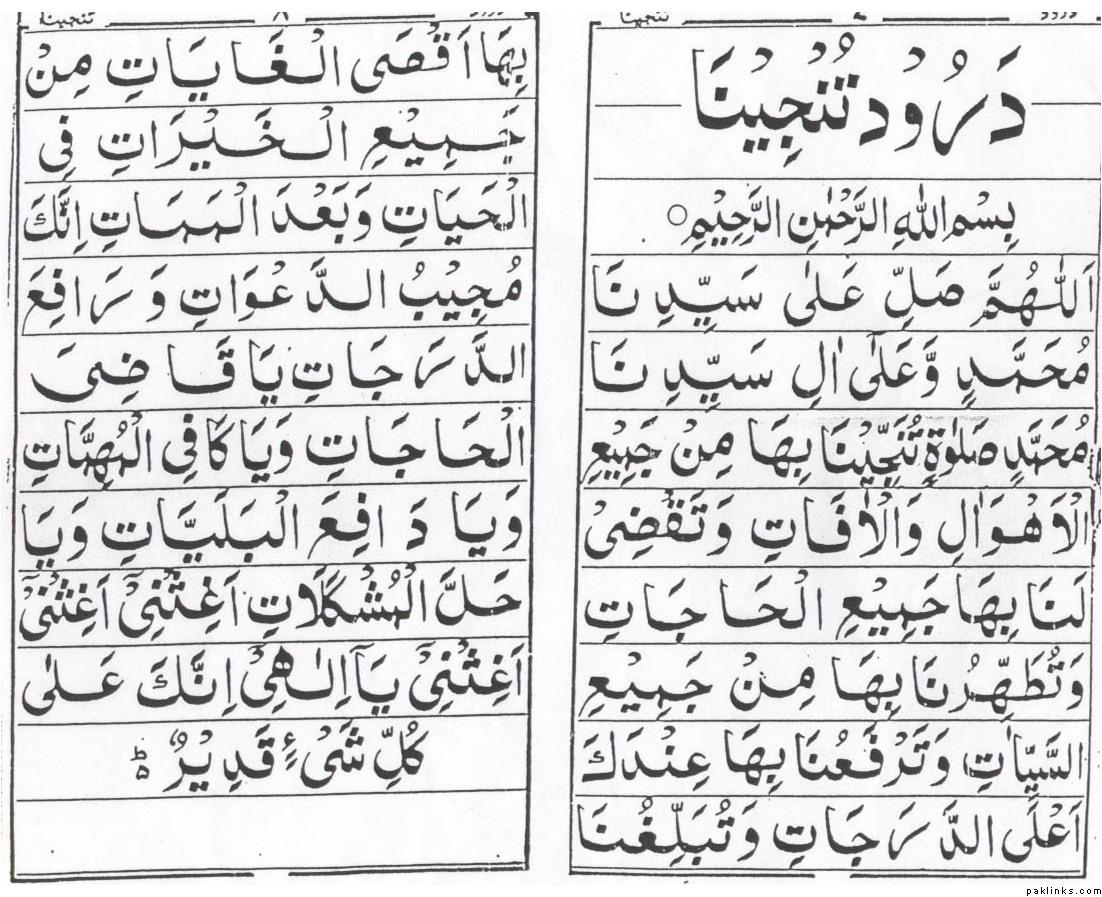 درود ۷ تنجینا
دَرُوْد تُنْجِيْنَا
بِسْمِ اللهِ الرَّحْمٰنِ الرَّحِيْمِ○
اَللّٰهُمَّ صَلِّ عَلٰى سَيِّدِنَا
مُحَمَّدٍ وَّعَلٰٓى اٰلِ سَيِّدِنَا
مُحَمَّدٍ صَلٰوةً تُنَجِّيْنَا بِهَا مِنْ جَمِيْعِ
الْاَهْوَالِ وَالْاٰفَاتِ وَتَقْضِىْ
لَنَا بِهَا جَمِيْعِ الْحَاجَاتِ
وَتُطَهِّرُنَا بِهَا مِنْ جَمِيْعِ
السَّيِّاٰتِ وَتَرْفَعُنَا بِهَا عِنْدَكَ
اَعْلَى الدَّرَجَاتِ وَتُبَلِّغُنَا
درود ۸ تنجینا
بِهَا اَقْصَى الْغَايَاتِ مِنْ
جَمِيْعِ الْخَيْرَاتِ فِى
الْحَيَاتِ وَبَعْدَ الْمَمَاتِ اِنَّكَ
مُجِيْبُ الدَّعْوَاتِ وَرَافِعَ
الدَّرَجَاتِ يَا قَاضِىَ
الْحَاجَاتِ وَيَا كَافِى الْمُهِمَّاتِ
وَيَا دَافِعَ الْبَلَيَّاتِ وَيَا
حَلَّ الْمُشْكَلَاتِ اَغِثْنِىْٓ اَغِثْنِىْٓ
اَغِثْنِىْٓ يَآ اِلٰهِىْٓ اِنَّكَ عَلٰى
كُلِّ شَىْءٍ قَدِيْرٌ ؕ
paklinks.com